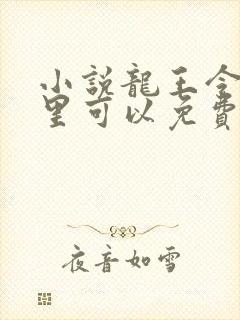 小說龍王令
里可以免費
夜音如雪